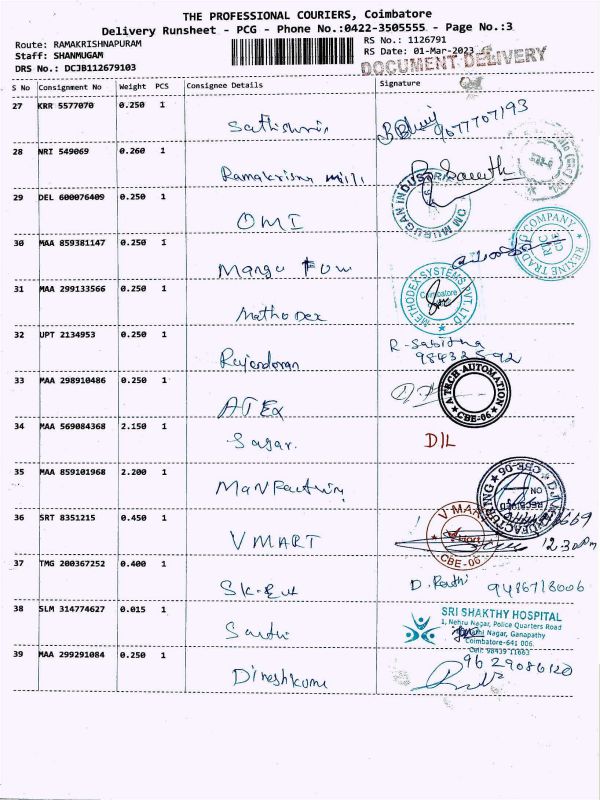 THE PROFESSIONAL COURIERS, Coimbatore
Delivery Runsheet - PCG - Phone No.:0422-3505555 - Page No.:3
Route: RAMAKRISHNAPURAM
RS No.: 1126791
Staff: SHANMUGAM
RS Date: 01-Mar-2023
DRS No.: DCJB112679103
DOCUMENT DELIVERY
S No Consignment No Weight PCS Consignee Details Signature
27 KRR 5577070 0.250 1
9677707193
28 NRI 549069 0.260 1
Ramakrisna mill
29 DEL 600076409 0.250 1
OMI
OM MURUGAN INDUSTRIES
30 MAA 859381147 0.250 1
REXINE TRADING COMPANY
31 MAA 299133566 0.250 1
Methodex
METHODEX SYSTEMS PVT. LTD
Coimbatore
32 UPT 2134953 0.250 1
Rajendoran
R-Sabitha
33 MAA 298910486 0.250 1
ATEx
A TECH AUTOMATION
CBE-06
34 MAA 569084368 2.150 1
Sagar.
D/L
35 MAA 859101968 2.200 1
Manfacturing
RECEIVED
ON
CBE-06
36 SRT 8351215 0.450 1
VMART
V MAX
CBE-06
12.30Pm
37 TMG 200367252 0.400 1
9486718006
38 SLM 314774627 0.015 1
SRI SHAKTHY HOSPITAL
1, Nehru Nagar, Police Quarters Road
Nagar, Ganapathy
Coimbatore-641 006.
Cell: 98439 11663
39 MAA 299291084 0.250 1
Dineshkumr
9629086120